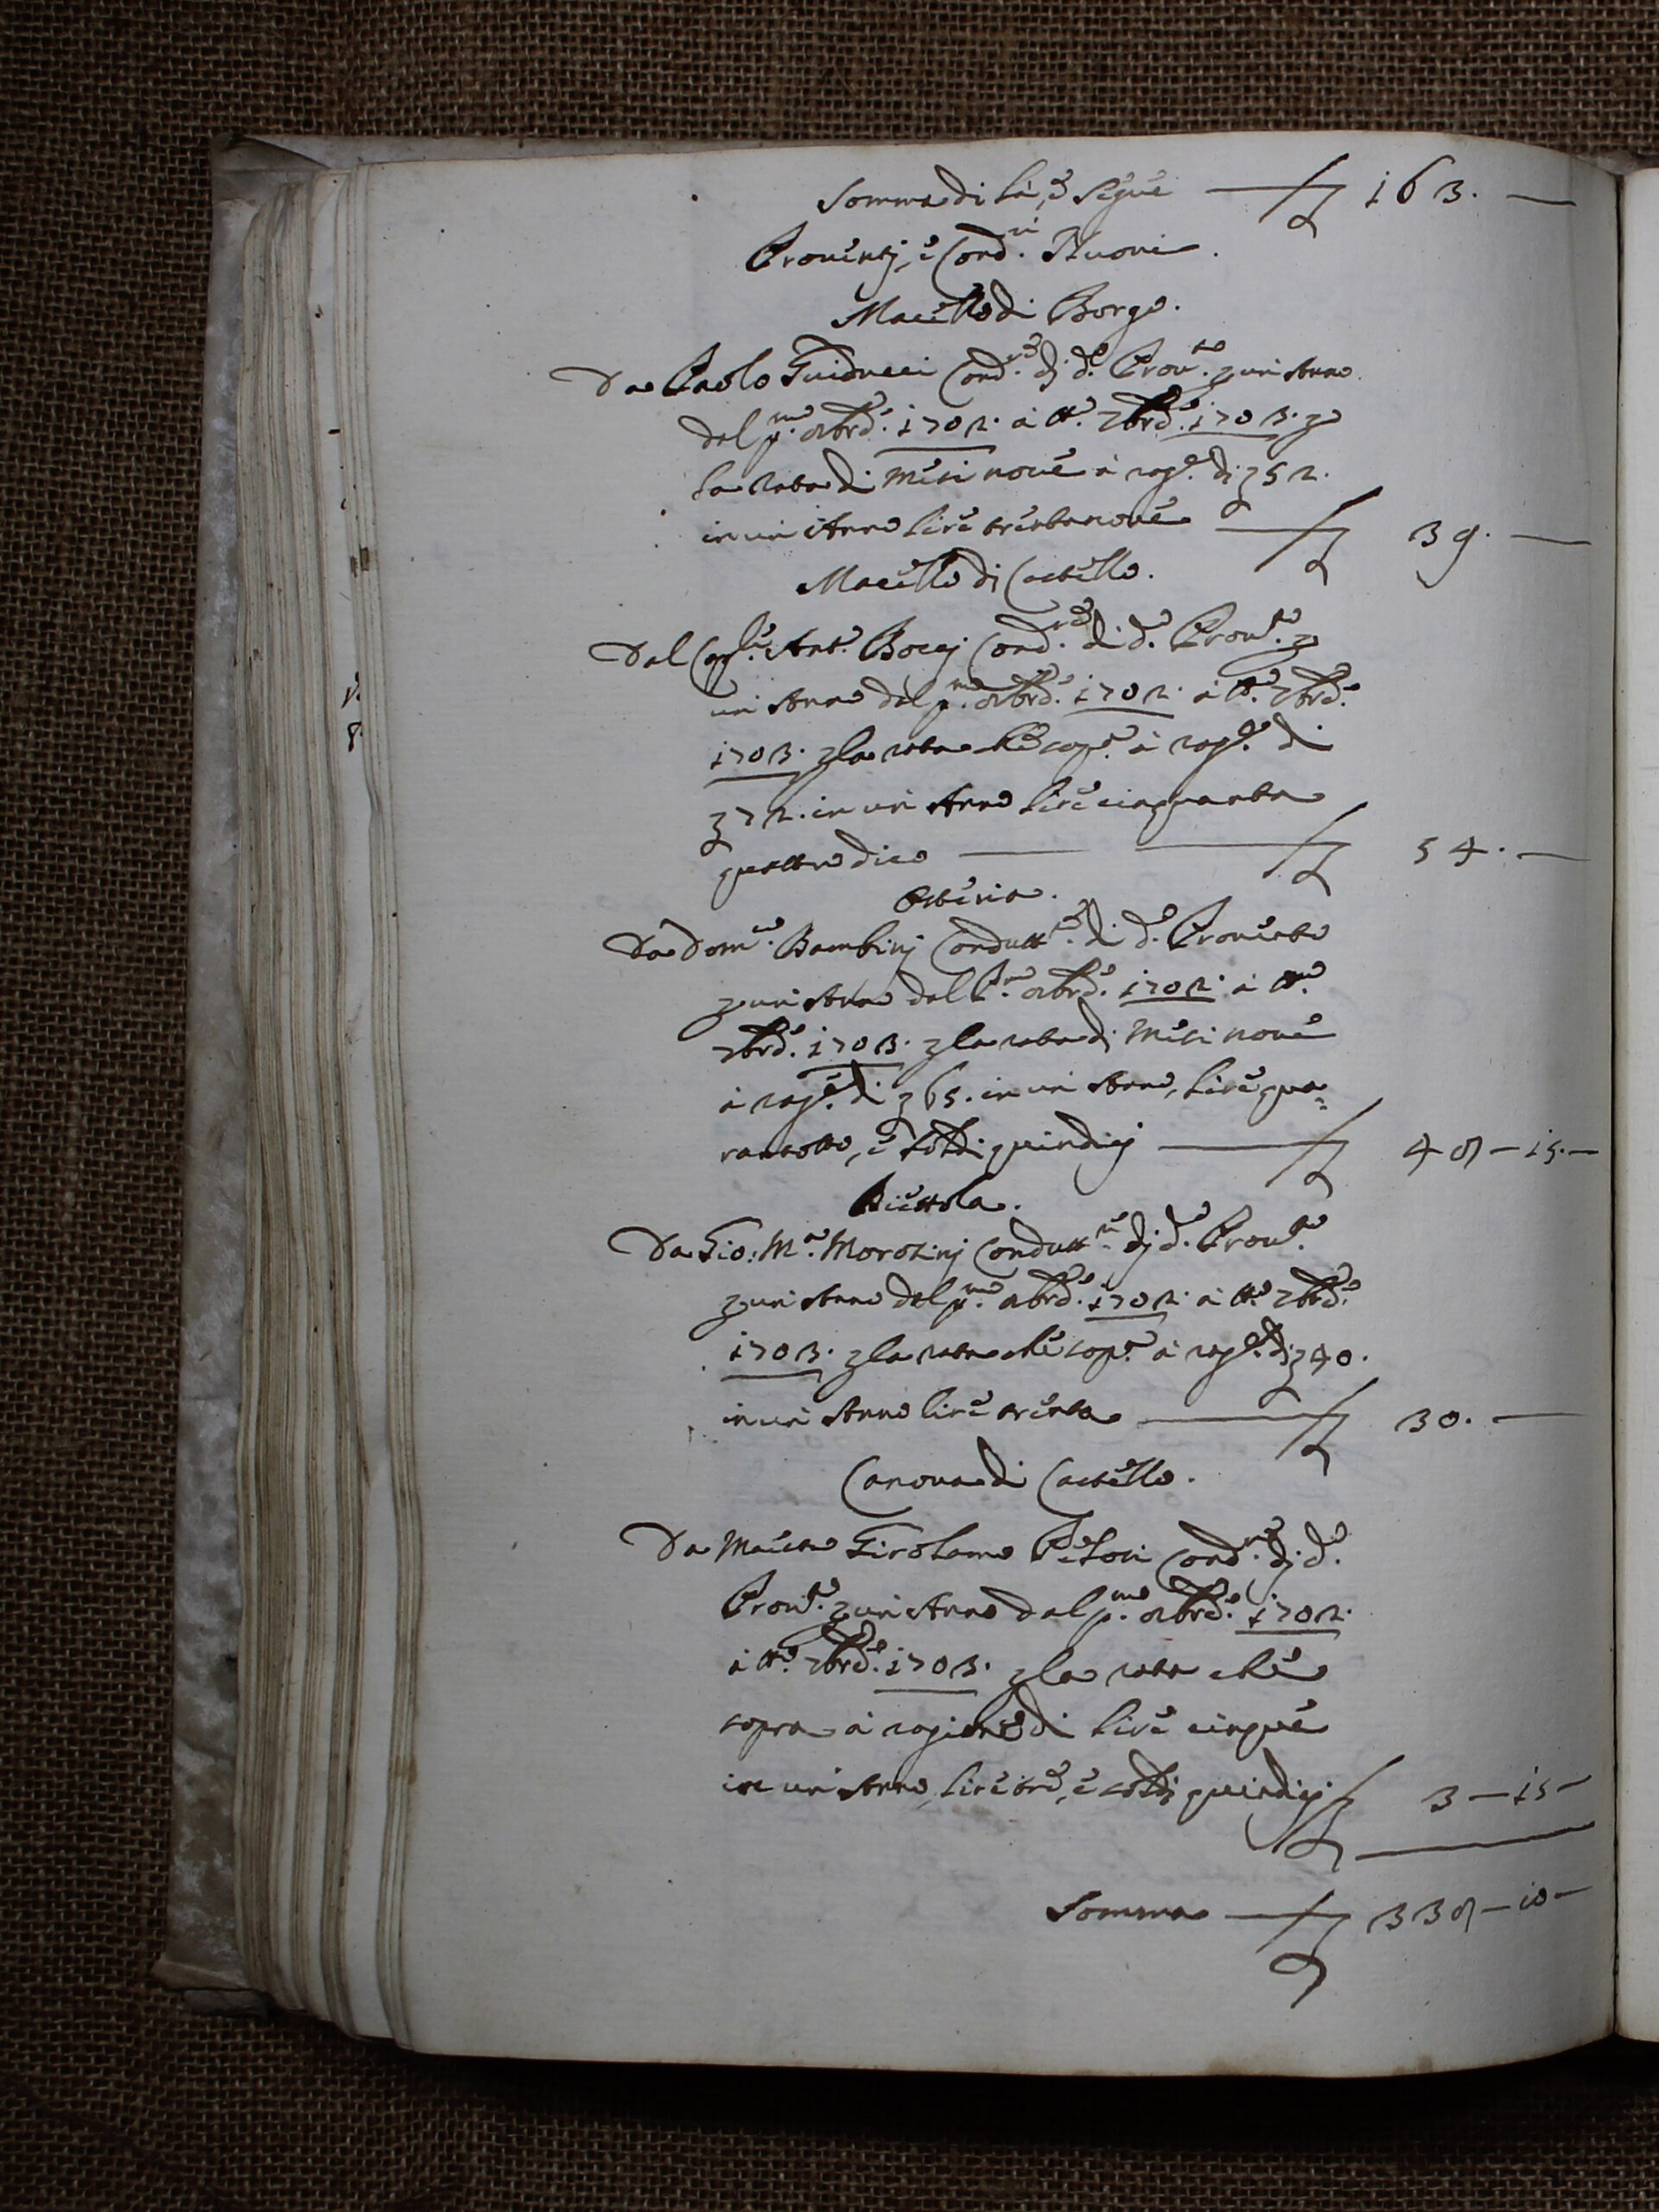 Somma di là, e Segue — £ 163. —
Proventj, e Cond.ri Nuovi.
Macello di Borgo.
Da Paolo Guiducci Cond.re dj d.o Prov.to p un Anno
dal p.mo 8bre. 1702. à tt.o 7bre. 1703. p
la rata di Mesi nove à rag.e di £ 52.
in un Anno lire trentanove — £ 39. —
Macello dj Castello.
Dal Ant.o Boccj Cond.re di d.o Prov.to p
un Anno dal p.mo 8bre. 1702. à tt.o 7bre.
1703. p la rata che sop.a à rag.e di
£ 72. in un Anno lire cinquanta
quattro dico — £ 54. —
Osteria.
Da Dom.co Bambinj Condutt.re di d.o Provento
p un Anno dal P.mo 8bre. 1702. à tt.o
7bre. 1703. p la rata dj Mesi nove
à rag.e di £ 65. in un Anno, lire qua=
rantotto, e soldi quindicj — £ 48 — 15. —
Biettola.
Da Gio: M.a Morosinj Condutt.re dj d.o Prov.to
p un Anno dal p.mo 8bre. 1702. à tt.o 7bre.
1703. p la rata che sop.a à rag.e dj £ 40.
in un Anno lire trenta — £ 30. —
Canova di Castello.
Da Maestro Girolamo Cond.re dj d.o
Prov.to p un Anno dal p.mo 8bre. 1702.
à tt.o 7bre. 1703. p la rata che
sopra à ragione di lire cinque
in un Anno, lire tre, e soldj quindicj £ 3 — 15 —
Somma — £ 338 — 10 —